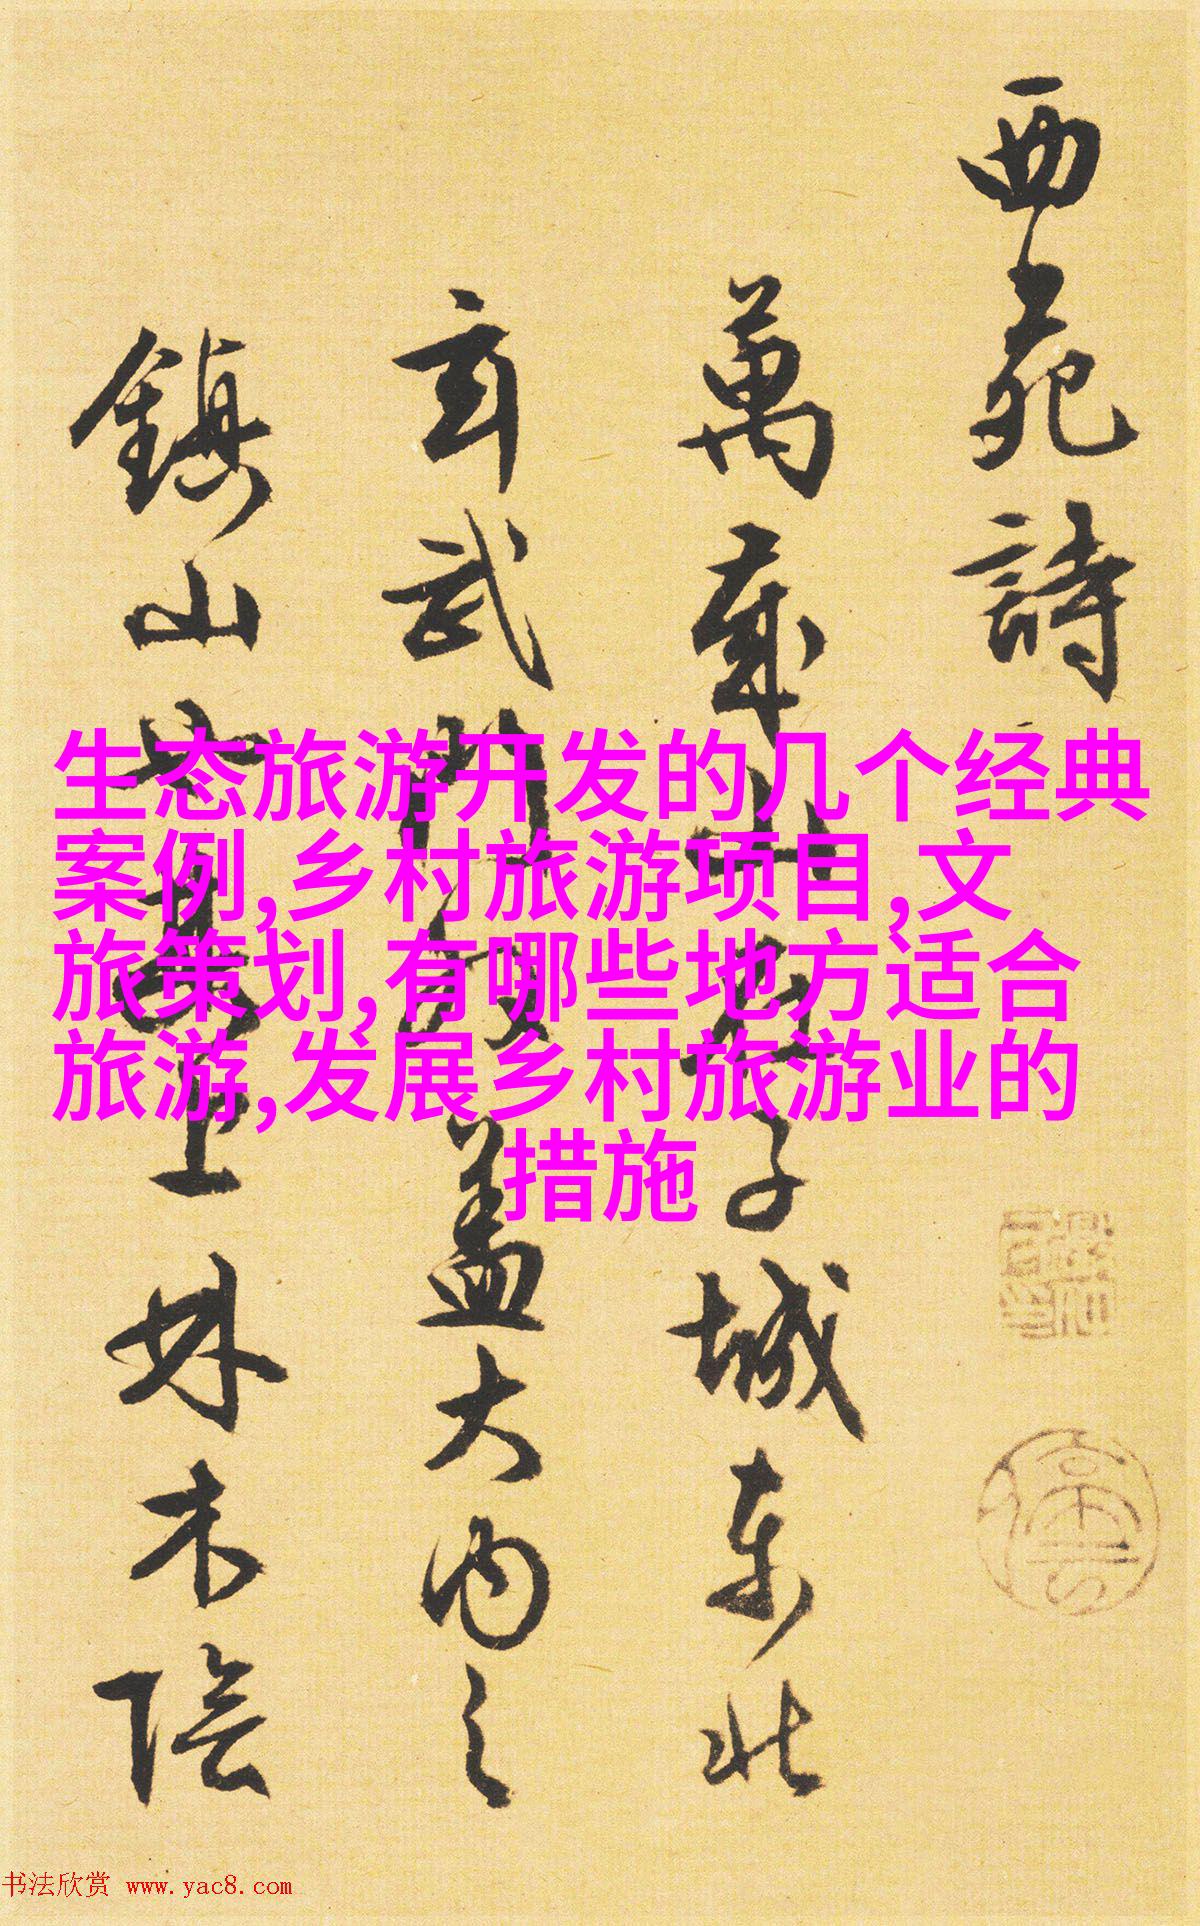 西苑詩
萬歲山在子城東北
玄武門外蓋大內之
鎮山也其上林木陰
生态旅游开发的几个经典
案例,乡村旅游项目,文
旅策划,有哪些地方适合
旅游,发展乡村旅游业的
措施
书法欣赏 www.yac8.com